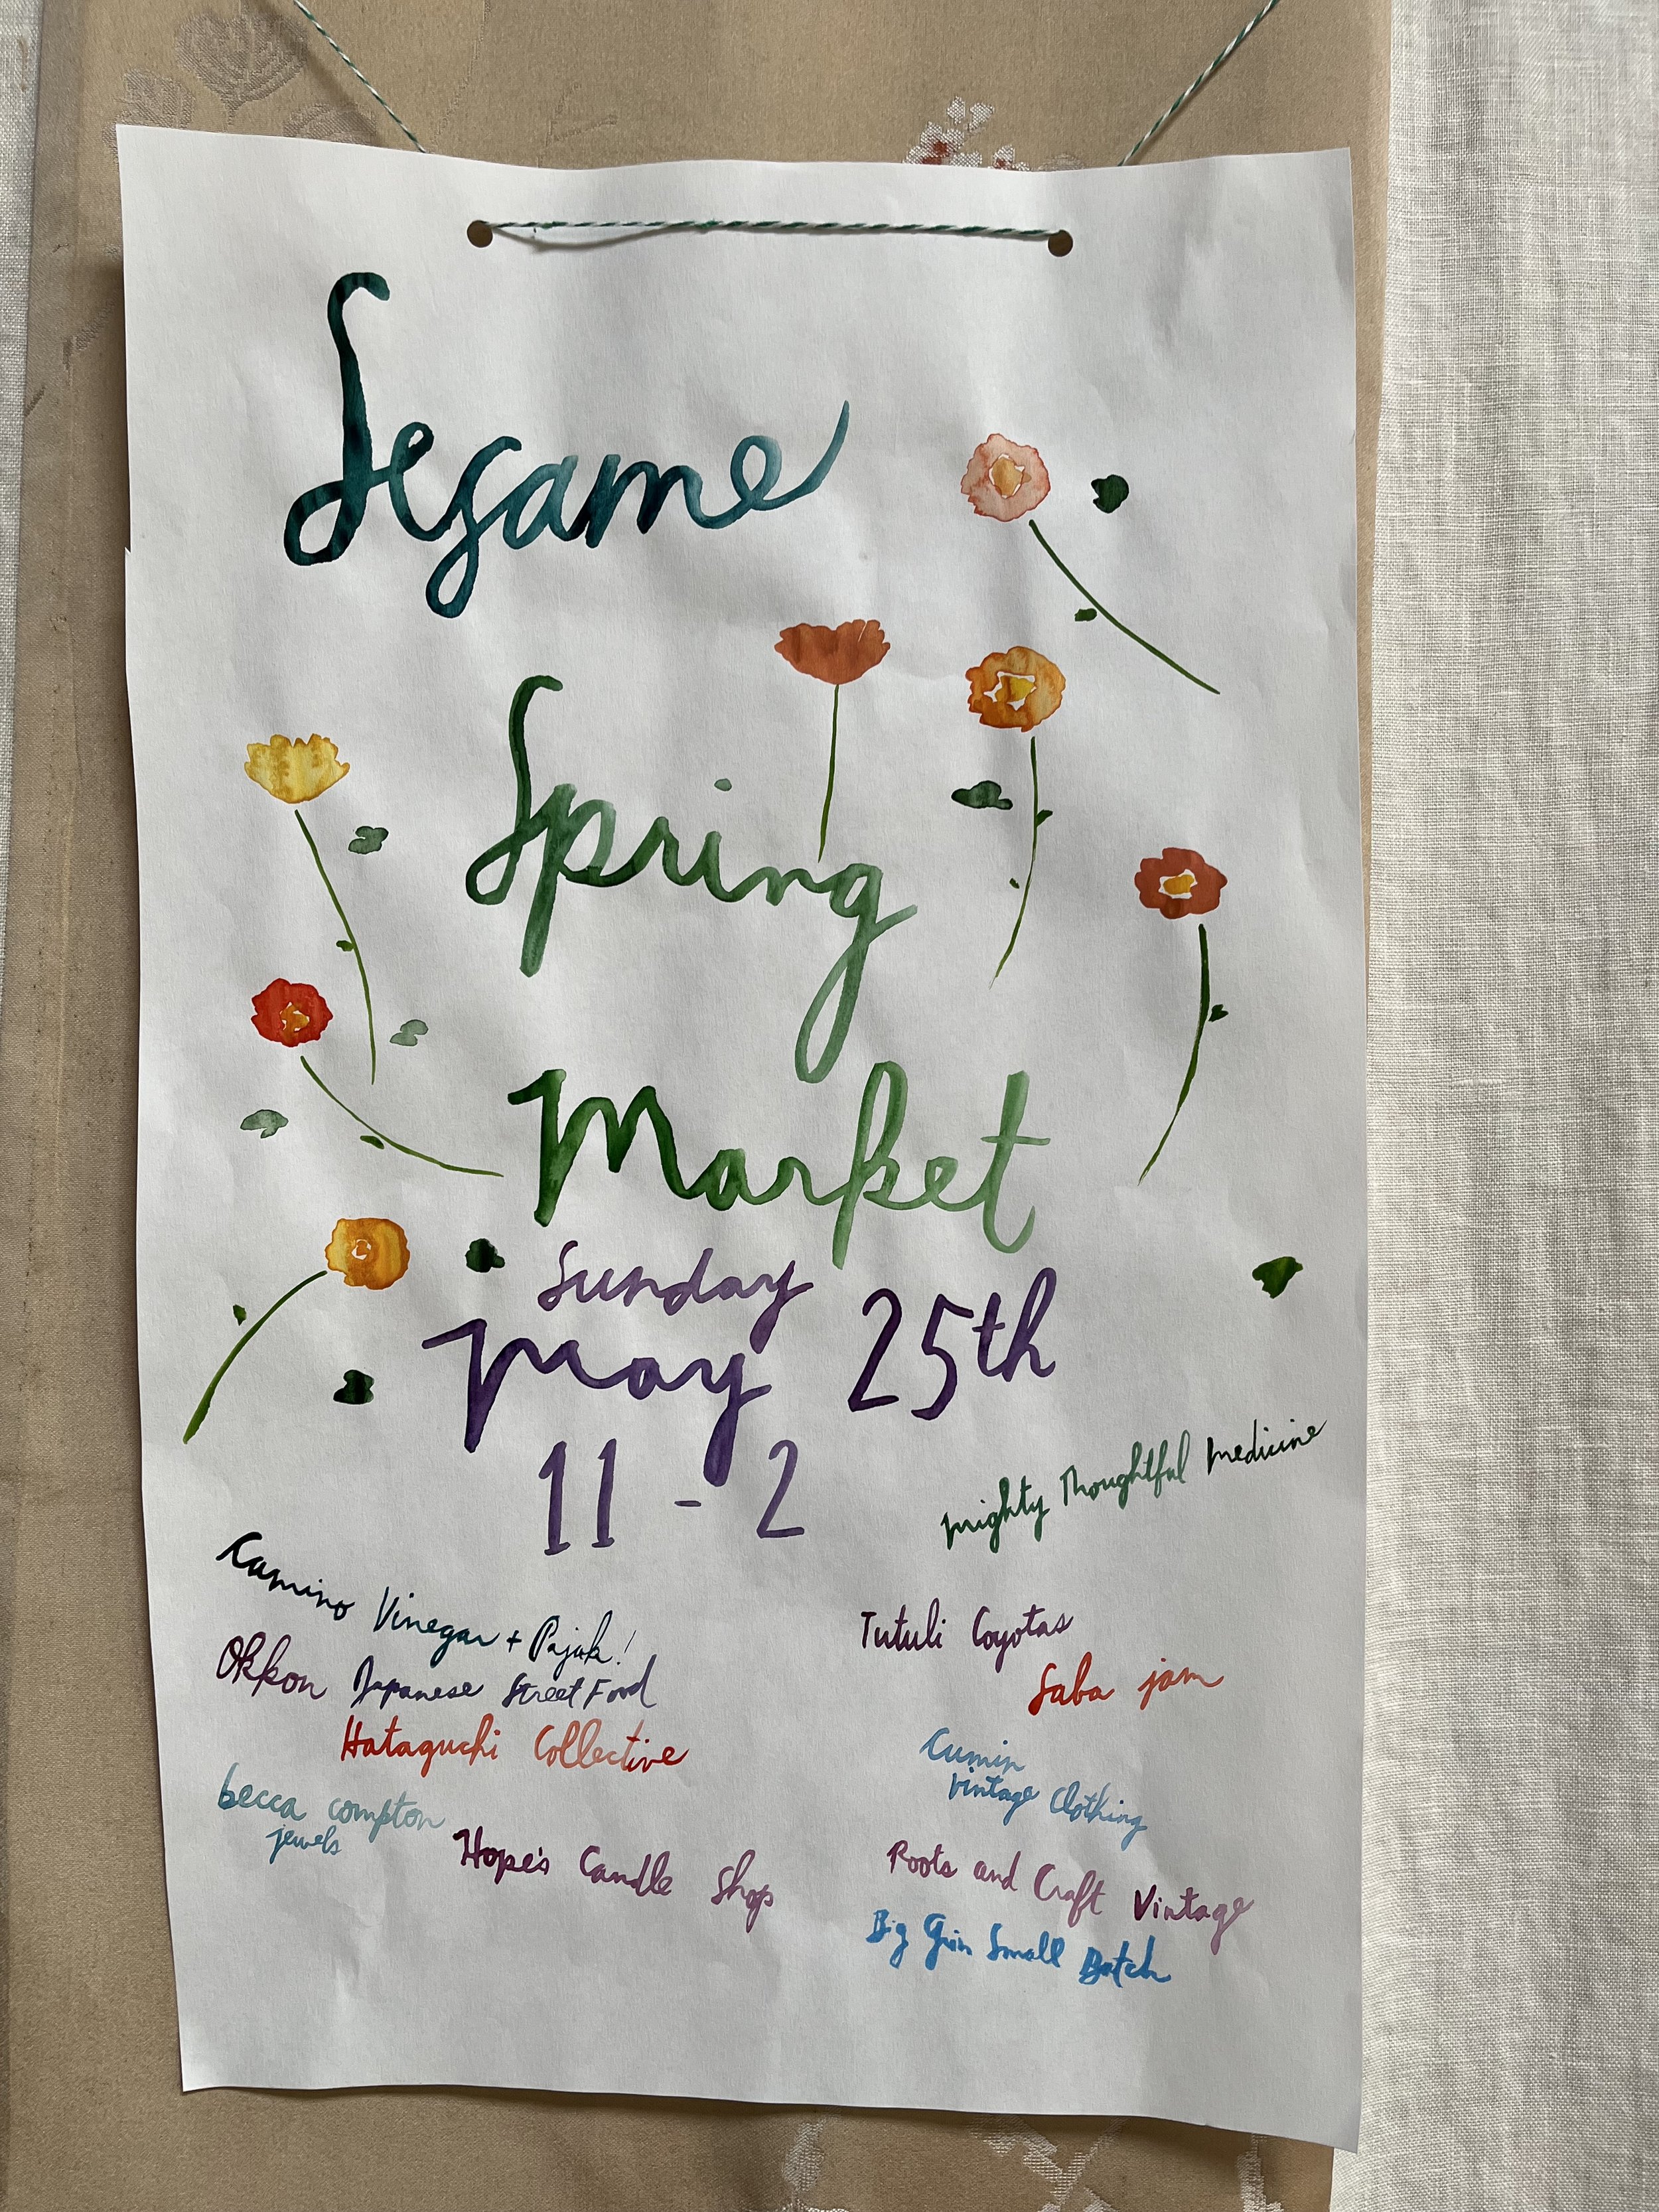 Sesame
Spring
Market
Sunday
May 25th
11 - 2
Mighty Thoughtful Medicine
Camino Vinegar + Pajuk!
Okkon Japanese Street Food
Hataguchi Collective
becca compton
jewels
Hope's Candle Shop
Tutuli Coyotas
Saba jam
Cumin
Vintage Clothing
Roots and Craft Vintage
Big Grin Small Batch